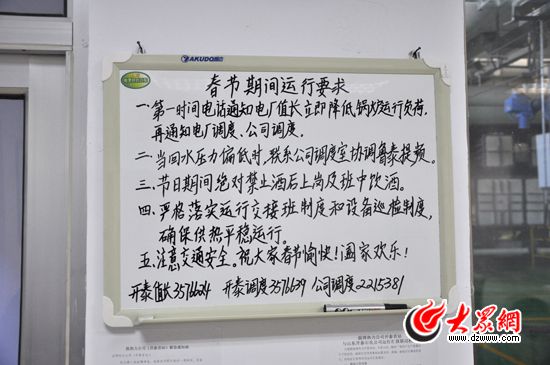 YAKUDO
春节期间运行要求
一.第一时间电话通知电厂值长立即降低锅炉运行负荷,
再通知电厂调度、公司调度.
二.当回水压力偏低时,联系公司调度室协调鲁泰提频。
三.节日期间绝对禁止酒后上岗及班中饮酒。
四.严格落实运行交接班制度和设备巡检制度,
确保供热平稳运行。
五.注意交通安全。祝大家春节愉快!阖家欢乐!
开泰值长3576624 开泰调度3576639 公司调度2215381
大众网
www.dzwww.com